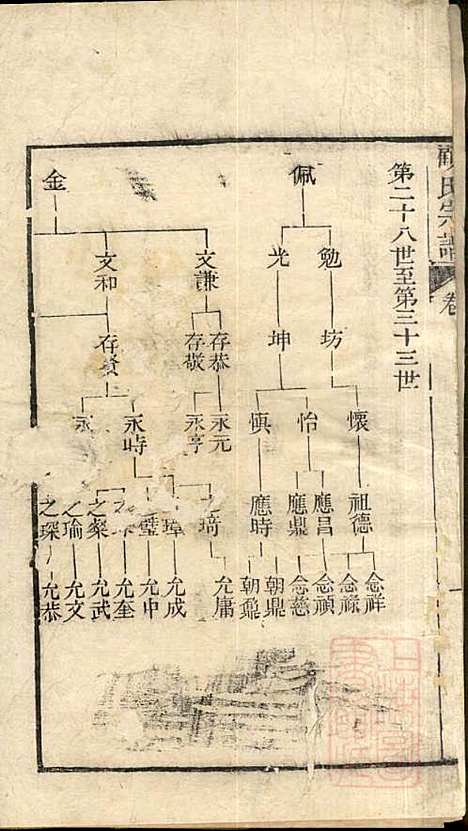 顧氏宗譜 卷
第二十八世至第三十三世
佩 金
勉 光 文謙 文和
坊 坤 存恭 存敬 存養
懷 怡 慎 永元 永亨 永時 永
祖德 應昌 應鼎 應時 琦 璋 璧 之 之燦 之瑜 之琛
念祥 念祿 念禎 念慈 朝鼎 朝鼐 允庸 允成 允中 允奎 允武 允文 允恭